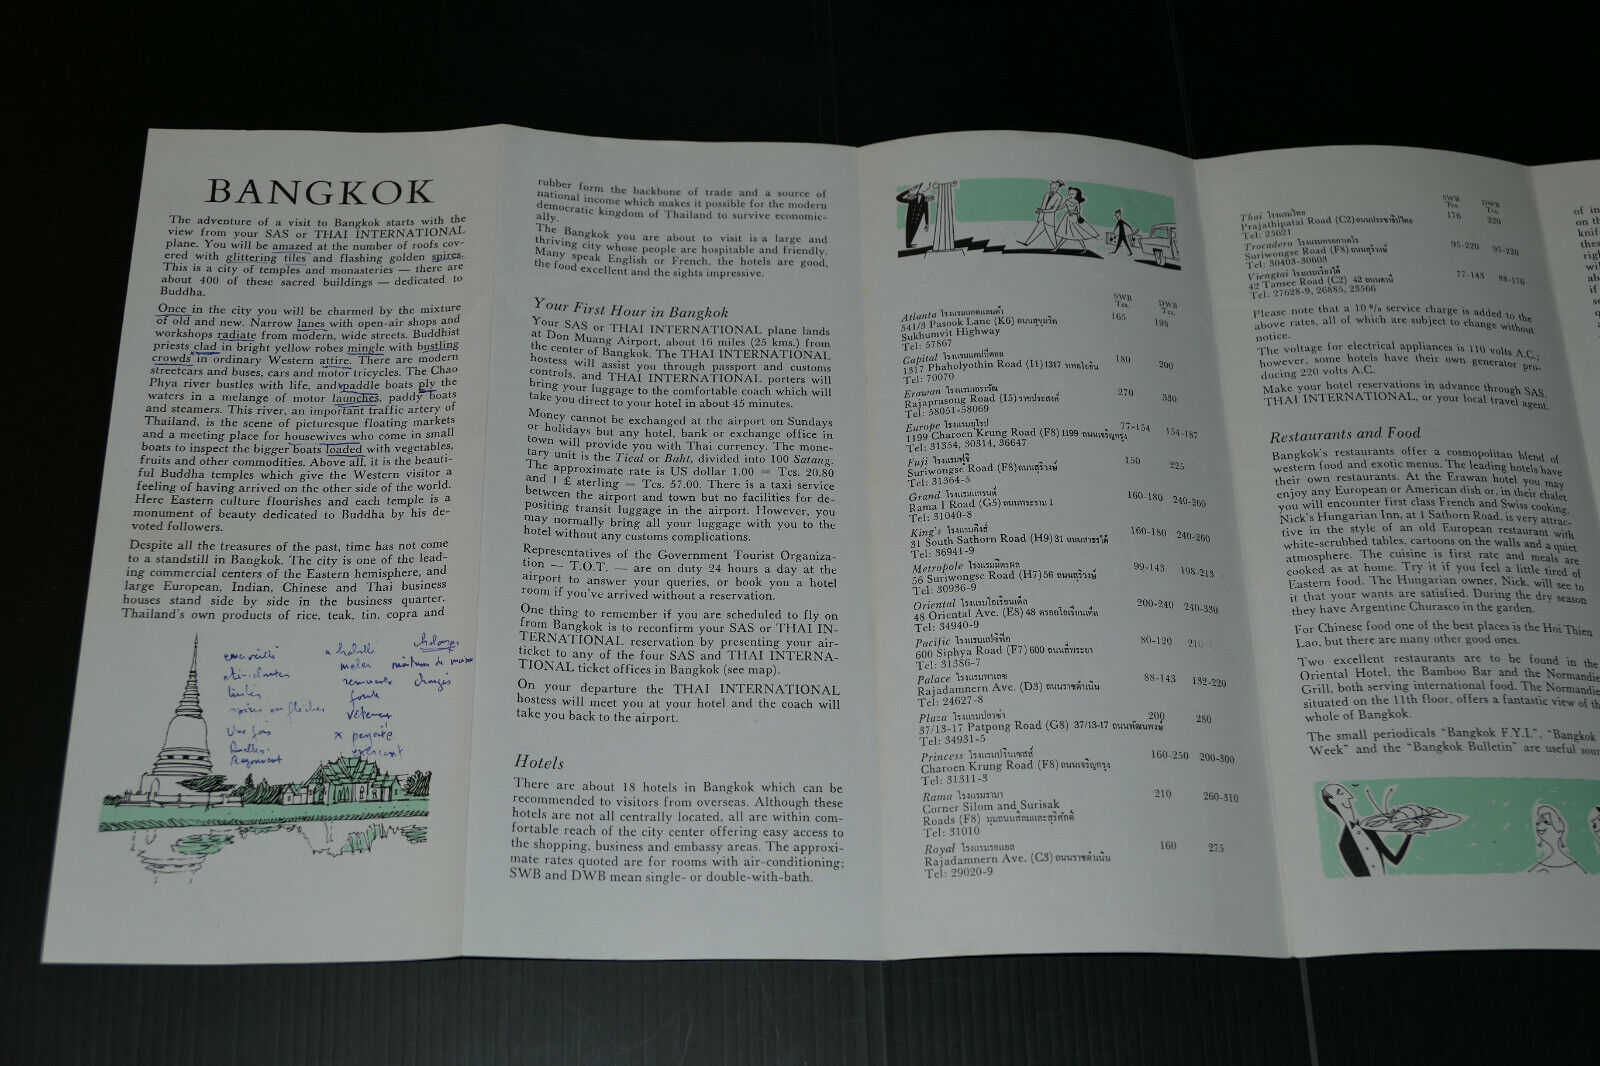 BANGKOK
The adventure of a visit to Bangkok starts with the
view from your SAS or THAI INTERNATIONAL
plane. You will be amazed at the number of roofs cov-
ered with glittering tiles and flashing golden spires.
This is a city of temples and monasteries — there are
about 400 of these sacred buildings — dedicated to
Buddha.
Once in the city you will be charmed by the mixture
of old and new. Narrow lanes with open-air shops and
workshops radiate from modern, wide streets. Buddhist
priests clad in bright yellow robes mingle with bustling
crowds in ordinary Western attire. There are modern
streetcars and buses, cars and motor tricycles. The Chao
Phya river bustles with life, and paddle boats ply the
waters in a melange of motor launches, paddy boats
and steamers. This river, an important traffic artery of
Thailand, is the scene of picturesque floating markets
and a meeting place for housewives who come in small
boats to inspect the bigger boats loaded with vegetables,
fruits and other commodities. Above all, it is the beauti-
ful Buddha temples which give the Western visitor a
feeling of having arrived on the other side of the world.
Here Eastern culture flourishes and each temple is a
monument of beauty dedicated to Buddha by his de-
voted followers.
Despite all the treasures of the past, time has not come
to a standstill in Bangkok. The city is one of the lead-
ing commercial centers of the Eastern hemisphere, and
large European, Indian, Chinese and Thai business
houses stand side by side in the business quarter.
Thailand's own products of rice, teak, tin, copra and
émerveillé
tuiles
spires ou flèches
Une fois
Ruelles
Rayonnent
x habillé
mêler
foule
vêtement
mélanges
chargés
rubber form the backbone of trade and a source of
national income which makes it possible for the modern
democratic kingdom of Thailand to survive economic-
ally.
The Bangkok you are about to visit is a large and
thriving city whose people are hospitable and friendly.
Many speak English or French, the hotels are good,
the food excellent and the sights impressive.
Your First Hour in Bangkok
Your SAS or THAI INTERNATIONAL plane lands
at Don Muang Airport, about 16 miles (25 kms.) from
the center of Bangkok. The THAI INTERNATIONAL
hostess will assist you through passport and customs
controls, and THAI INTERNATIONAL porters will
bring your luggage to the comfortable coach which will
take you direct to your hotel in about 45 minutes.
Money cannot be exchanged at the airport on Sundays
or holidays but any hotel, bank or exchange office in
town will provide you with Thai currency. The mone-
tary unit is the Tical or Baht, divided into 100 Satang.
The approximate rate is US dollar 1.00 = Tcs. 20.80
and 1 £ sterling = Tcs. 57.00. There is a taxi service
between the airport and town but no facilities for de-
positing transit luggage in the airport. However, you
may normally bring all your luggage with you to the
hotel without any customs complications.
Representatives of the Government Tourist Organiza-
tion — T.O.T. — are on duty 24 hours a day at the
airport to answer your queries, or book you a hotel
room if you've arrived without a reservation.
One thing to remember if you are scheduled to fly on
from Bangkok is to reconfirm your SAS or THAI IN-
TERNATIONAL reservation by presenting your air-
ticket to any of the four SAS and THAI INTERNA-
TIONAL ticket offices in Bangkok (see map).
On your departure the THAI INTERNATIONAL
hostess will meet you at your hotel and the coach will
take you back to the airport.
Hotels
There are about 18 hotels in Bangkok which can be
recommended to visitors from overseas. Although these
hotels are not all centrally located, all are within com-
fortable reach of the city center offering easy access to
the shopping, business and embassy areas. The approxi-
mate rates quoted are for rooms with air-conditioning;
SWB and DWB mean single- or double-with-bath.
SWB DWB
Tcs. Tcs.
Atlanta โรงแรมแอตแลนต้า 165 198
541/3 Pasook Lane (K6) ถนนสุขุมวิท
Sukhumvit Highway
Tel: 57867
Capital โรงแรมแคปปิตอล 180 200
1317 Phaholyothin Road (I1) 1317 พหลโยธิน
Tel: 70070
Erawan โรงแรมเอราวัณ 270 330
Rajaprasong Road (I5) ราชประสงค์
Tel: 58051-58069
Europe โรงแรมยุโรป 77-154 154-187
1199 Charoen Krung Road (F8) 1199 ถนนเจริญกรุง
Tel: 31354, 30314, 36647
Fuji โรงแรมฟูจิ 150 225
Suriwongse Road (F8) ถนนสุริวงษ์
Tel: 31364-5
Grand โรงแรมแกรนด์ 160-180 240-260
Rama I Road (G5) ถนนพระราม 1
Tel: 31040-8
King's โรงแรมคิงส์ 160-180 240-260
31 South Sathorn Road (H9) 31 ถนนสาธรใต้
Tel: 36941-9
Metropole โรงแรมเมโทรโปล 99-143 198-213
56 Suriwongse Road (H7) 56 ถนนสุริวงษ์
Tel: 30936-9
Oriental โรงแรมโอเรียนเต็ล 200-240 240-330
48 Oriental Ave. (E8) 48 ตรอกโอเรียนเต็ล
Tel: 34940-9
Pacific โรงแรมแปซิฟิก 80-120
600 Siphya Road (F7) 600 ถนนสี่พระยา
Tel: 31386-7
Palace โรงแรมพาเลซ 88-143 132-220
Rajadamnern Ave. (D3) ถนนราชดำเนิน
Tel: 24627-8
Plaza โรงแรมปลาซ่า 200 280
37/13-17 Patpong Road (G8) 37/13-17 ถนนพัฒนพงษ์
Tel: 34931-5
Princess โรงแรมปรินเซสส์ 160-250 200-300
Charoen Krung Road (F8) ถนนเจริญกรุง
Tel: 31311-3
Rama โรงแรมรามา 210 260-310
Corner Silom and Surisak
Roads (F8) มุมถนนสีลมและสุรศักดิ์
Tel: 31010
Royal โรงแรมรอแยล 160 275
Rajadamnern Ave. (C3) ถนนราชดำเนิน
Tel: 29020-9
SWB DWB
Tcs. Tcs.
Thai โรงแรมไทย 176 220
Prajathipatai Road (C2) ถนนประชาธิปไตย
Tel: 25621
Trocadero โรงแรมทรอคาเดโร 95-220 95-220
Suriwongse Road (F8) ถนนสุริวงษ์
Tel: 30403-30608
Viengtai โรงแรมเวียงใต้ 77-143 88-176
42 Tansee Road (C2) 42 ถนนตานี
Tel: 27628-9, 26885, 23566
Please note that a 10% service charge is added to the
above rates, all of which are subject to change without
notice.
The voltage for electrical appliances is 110 volts A.C.;
however, some hotels have their own generator pro-
ducing 220 volts A.C.
Make your hotel reservations in advance through SAS,
THAI INTERNATIONAL, or your local travel agent.
Restaurants and Food
Bangkok's restaurants offer a cosmopolitan blend of
western food and exotic menus. The leading hotels have
their own restaurants. At the Erawan hotel you may
enjoy any European or American dish or, in their chalet
you will encounter first class French and Swiss cooking.
Nick's Hungarian Inn, at 1 Sathorn Road, is very attrac-
tive in the style of an old European restaurant with
white-scrubbed tables, cartoons on the walls and a quiet
atmosphere. The cuisine is first rate and meals are
cooked as at home. Try it if you feel a little tired of
Eastern food. The Hungarian owner, Nick, will see to
it that your wants are satisfied. During the dry season
they have Argentine Churasco in the garden.
For Chinese food one of the best places is the Hoi Thien
Lao, but there are many other good ones.
Two excellent restaurants are to be found in the
Oriental Hotel, the Bamboo Bar and the Normandie
Grill, both serving international food. The Normandie
situated on the 11th floor, offers a fantastic view of the
whole of Bangkok.
The small periodicals "Bangkok F.Y.I.", "Bangkok
Week" and the "Bangkok Bulletin" are useful sour
of in
on th
knif
thes
righ
wil
ab
if